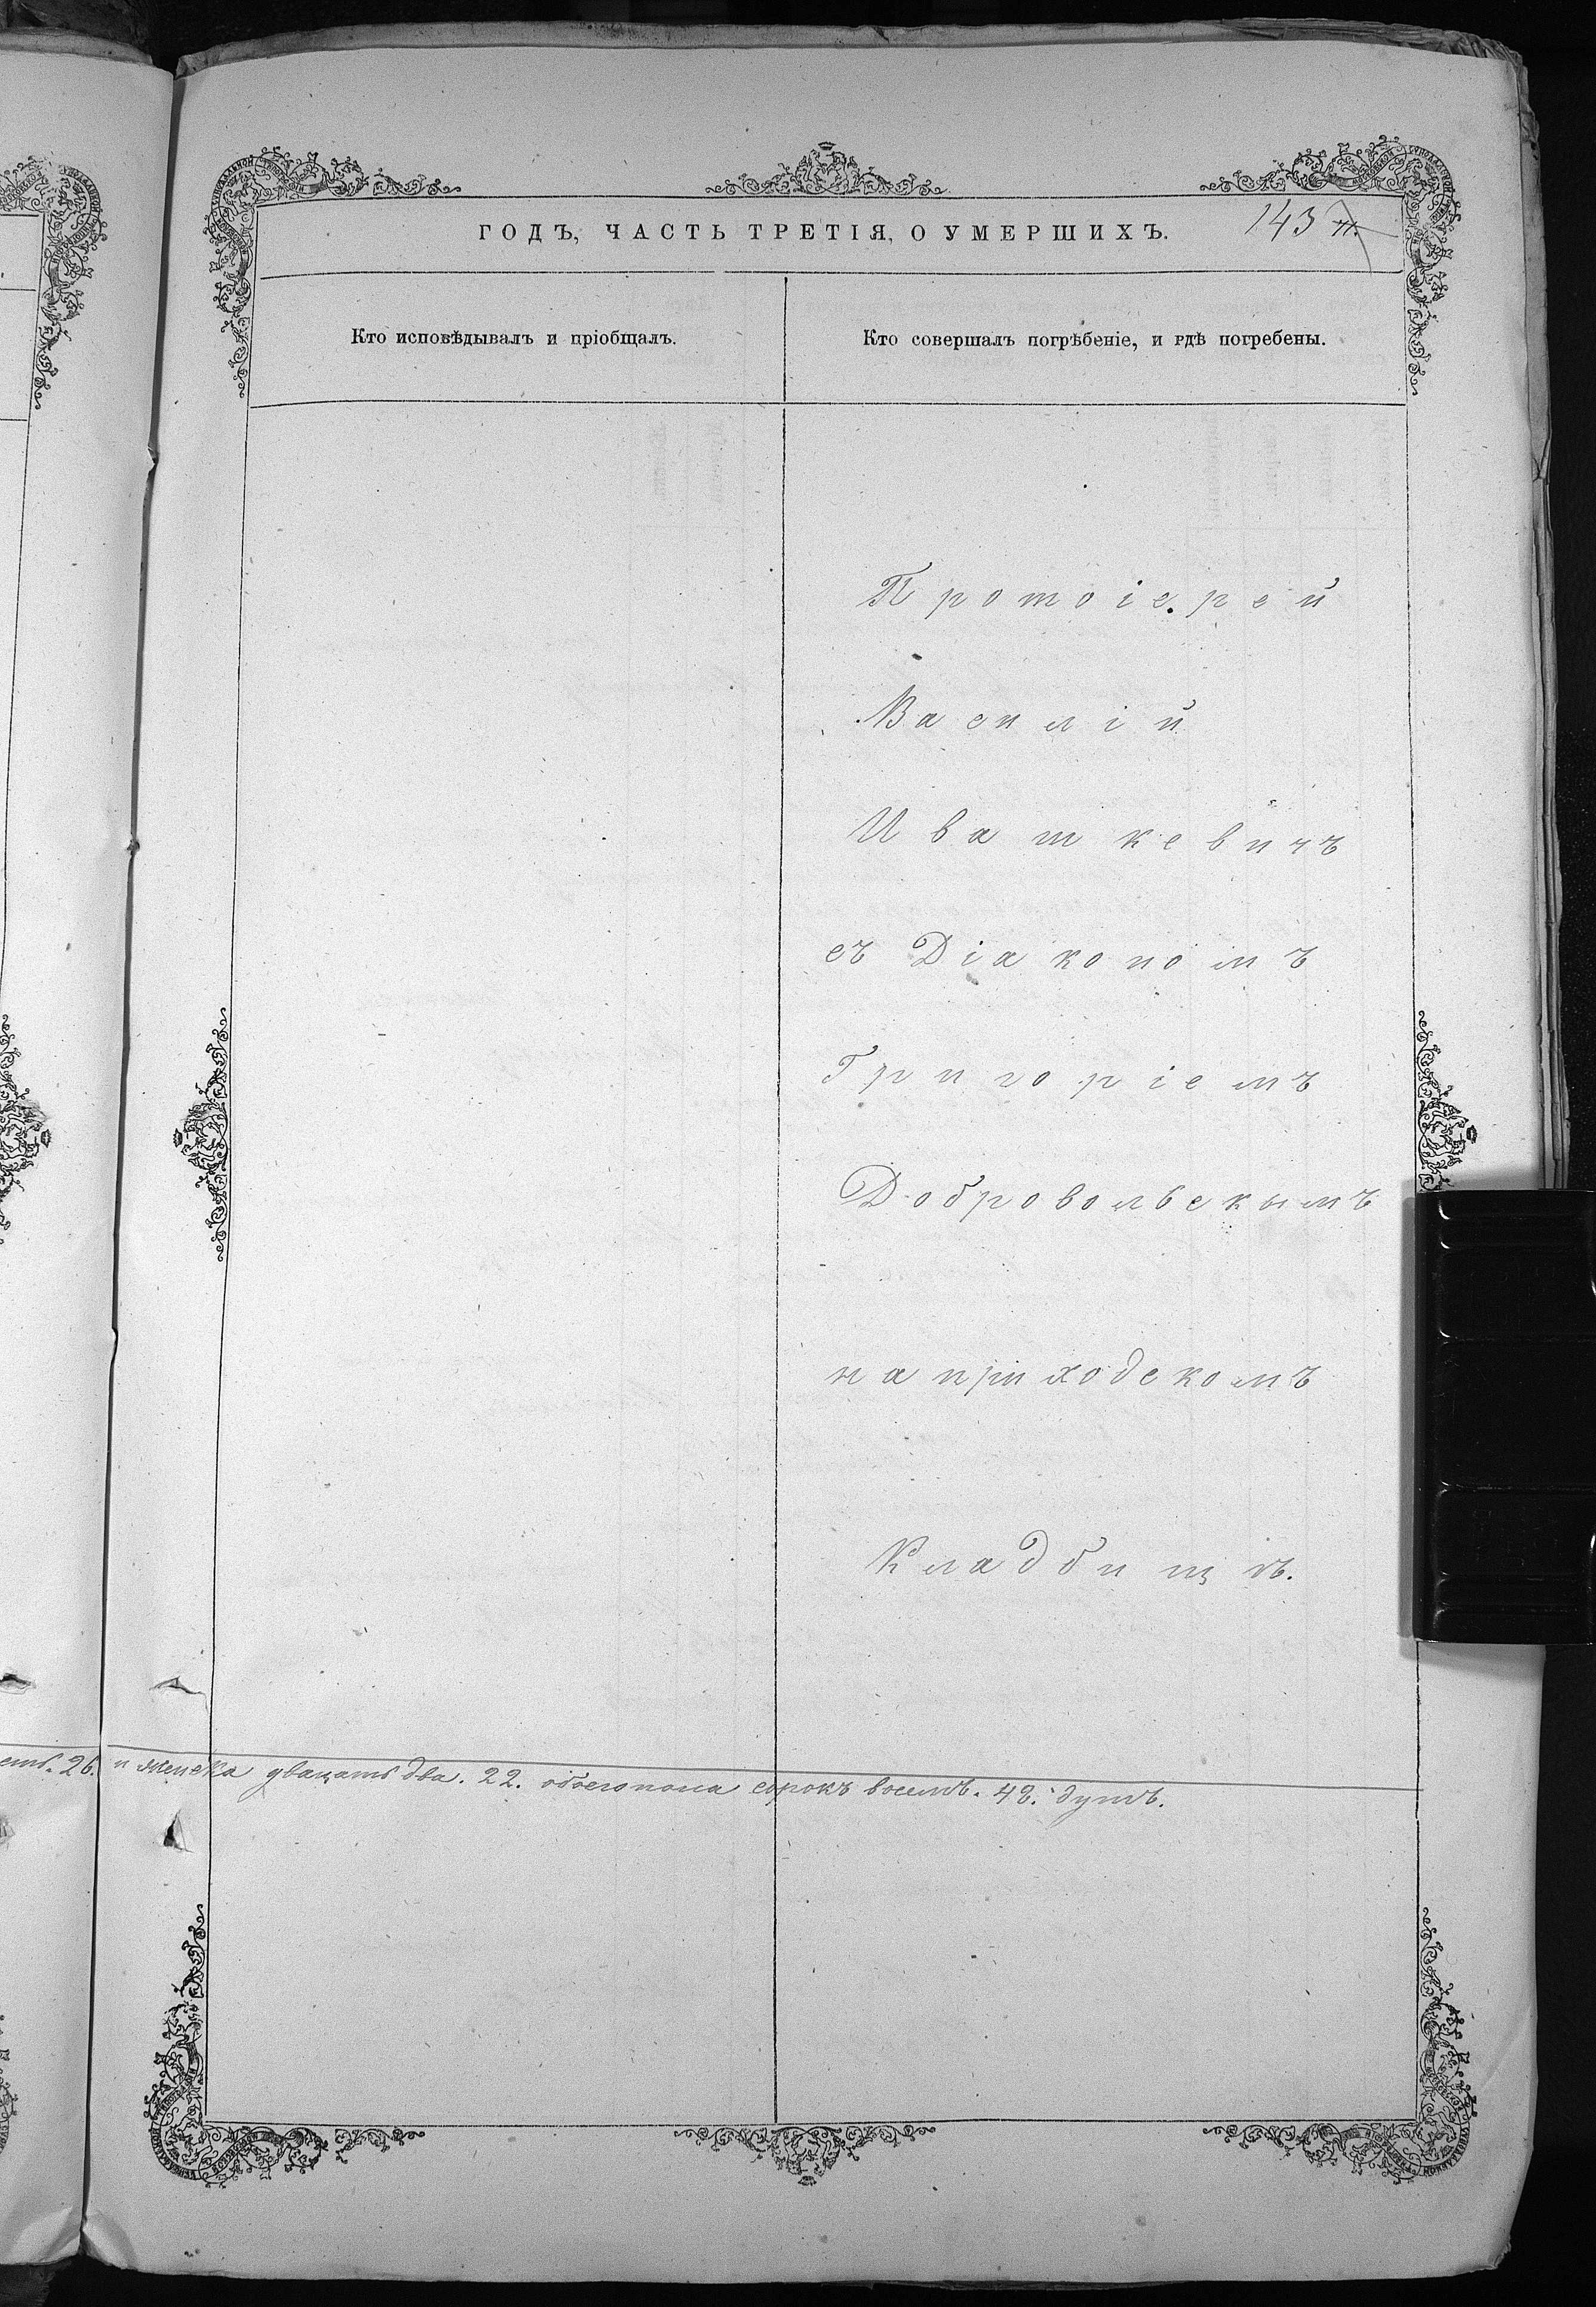 ГОДЪ, ЧАСТЬ ТРЕТІЯ, О УМЕРШИХЪ.
143
Кто исповѣдывалъ и пріобщалъ.
Кто совершалъ погрѣбеніе, и гдѣ погребены.
Протоіерей
Василій
Ивашкевичъ
съ Діакономъ
Григоріемъ
Добровольскымъ
на приходскомъ
Кладбищѣ.
26. и женска двацать два. 22. обоего пола сорокъ восемь. 48. душъ.